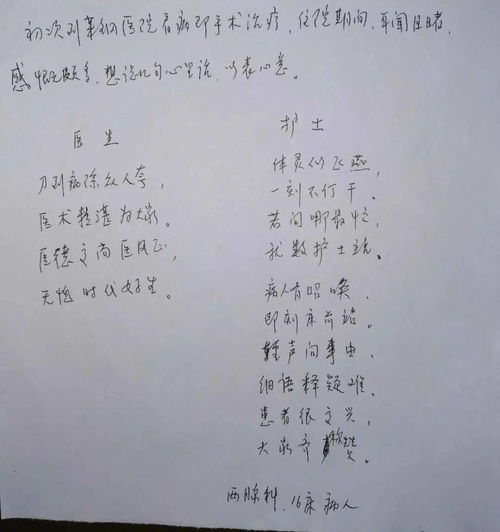 初次到革钢医院看病即手术治疗，住院期间，耳闻目睹，
感慨颇多，想说几句心里话，以表心意。
医生
刀到病除众人夸，
医术精湛为大家。
医德高尚医风正，
无愧时代好医生。
护士
体灵似飞燕，
一刻不停干。
若问哪最忙，
就数护士站。
病人有召唤，
即刻床前站。
轻声问事由，
细语释疑难。
患者很高兴，
大家齐称赞。
两腺科，16床病人